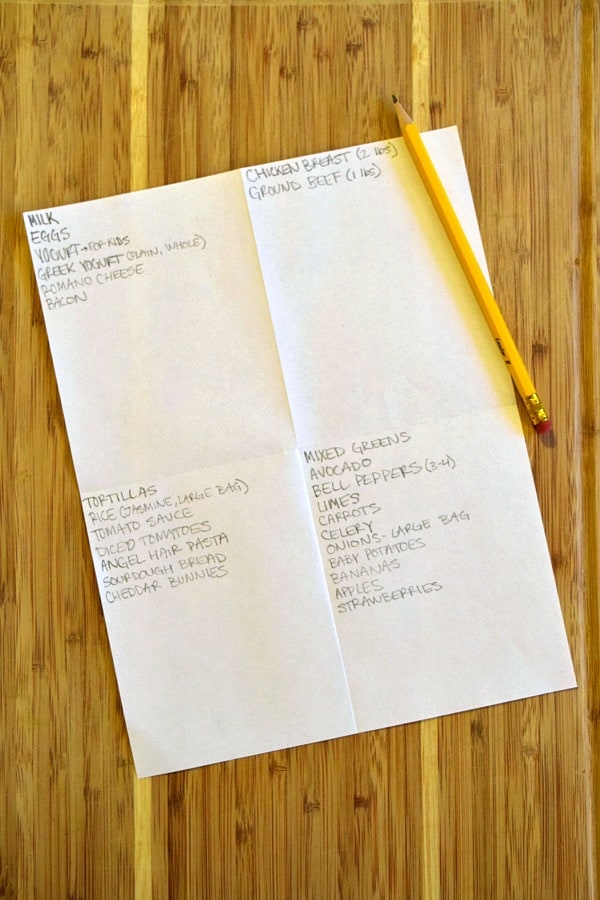 MILK
EGGS
YOGURT → FOR KIDS
GREEK YOGURT (PLAIN, WHOLE)
ROMANO CHEESE
BACON
CHICKEN BREAST (2 lbs)
GROUND BEEF (1 lbs)
TORTILLAS
RICE (JASMINE, LARGE BAG)
TOMATO SAUCE
DICED TOMATOES
ANGEL HAIR PASTA
SOURDOUGH BREAD
CHEDDAR BUNNIES
MIXED GREENS
AVOCADO
BELL PEPPERS (3-4)
LIMES
CARROTS
CELERY
ONIONS - LARGE BAG
BABY POTATOES
BANANAS
APPLES
STRAWBERRIES